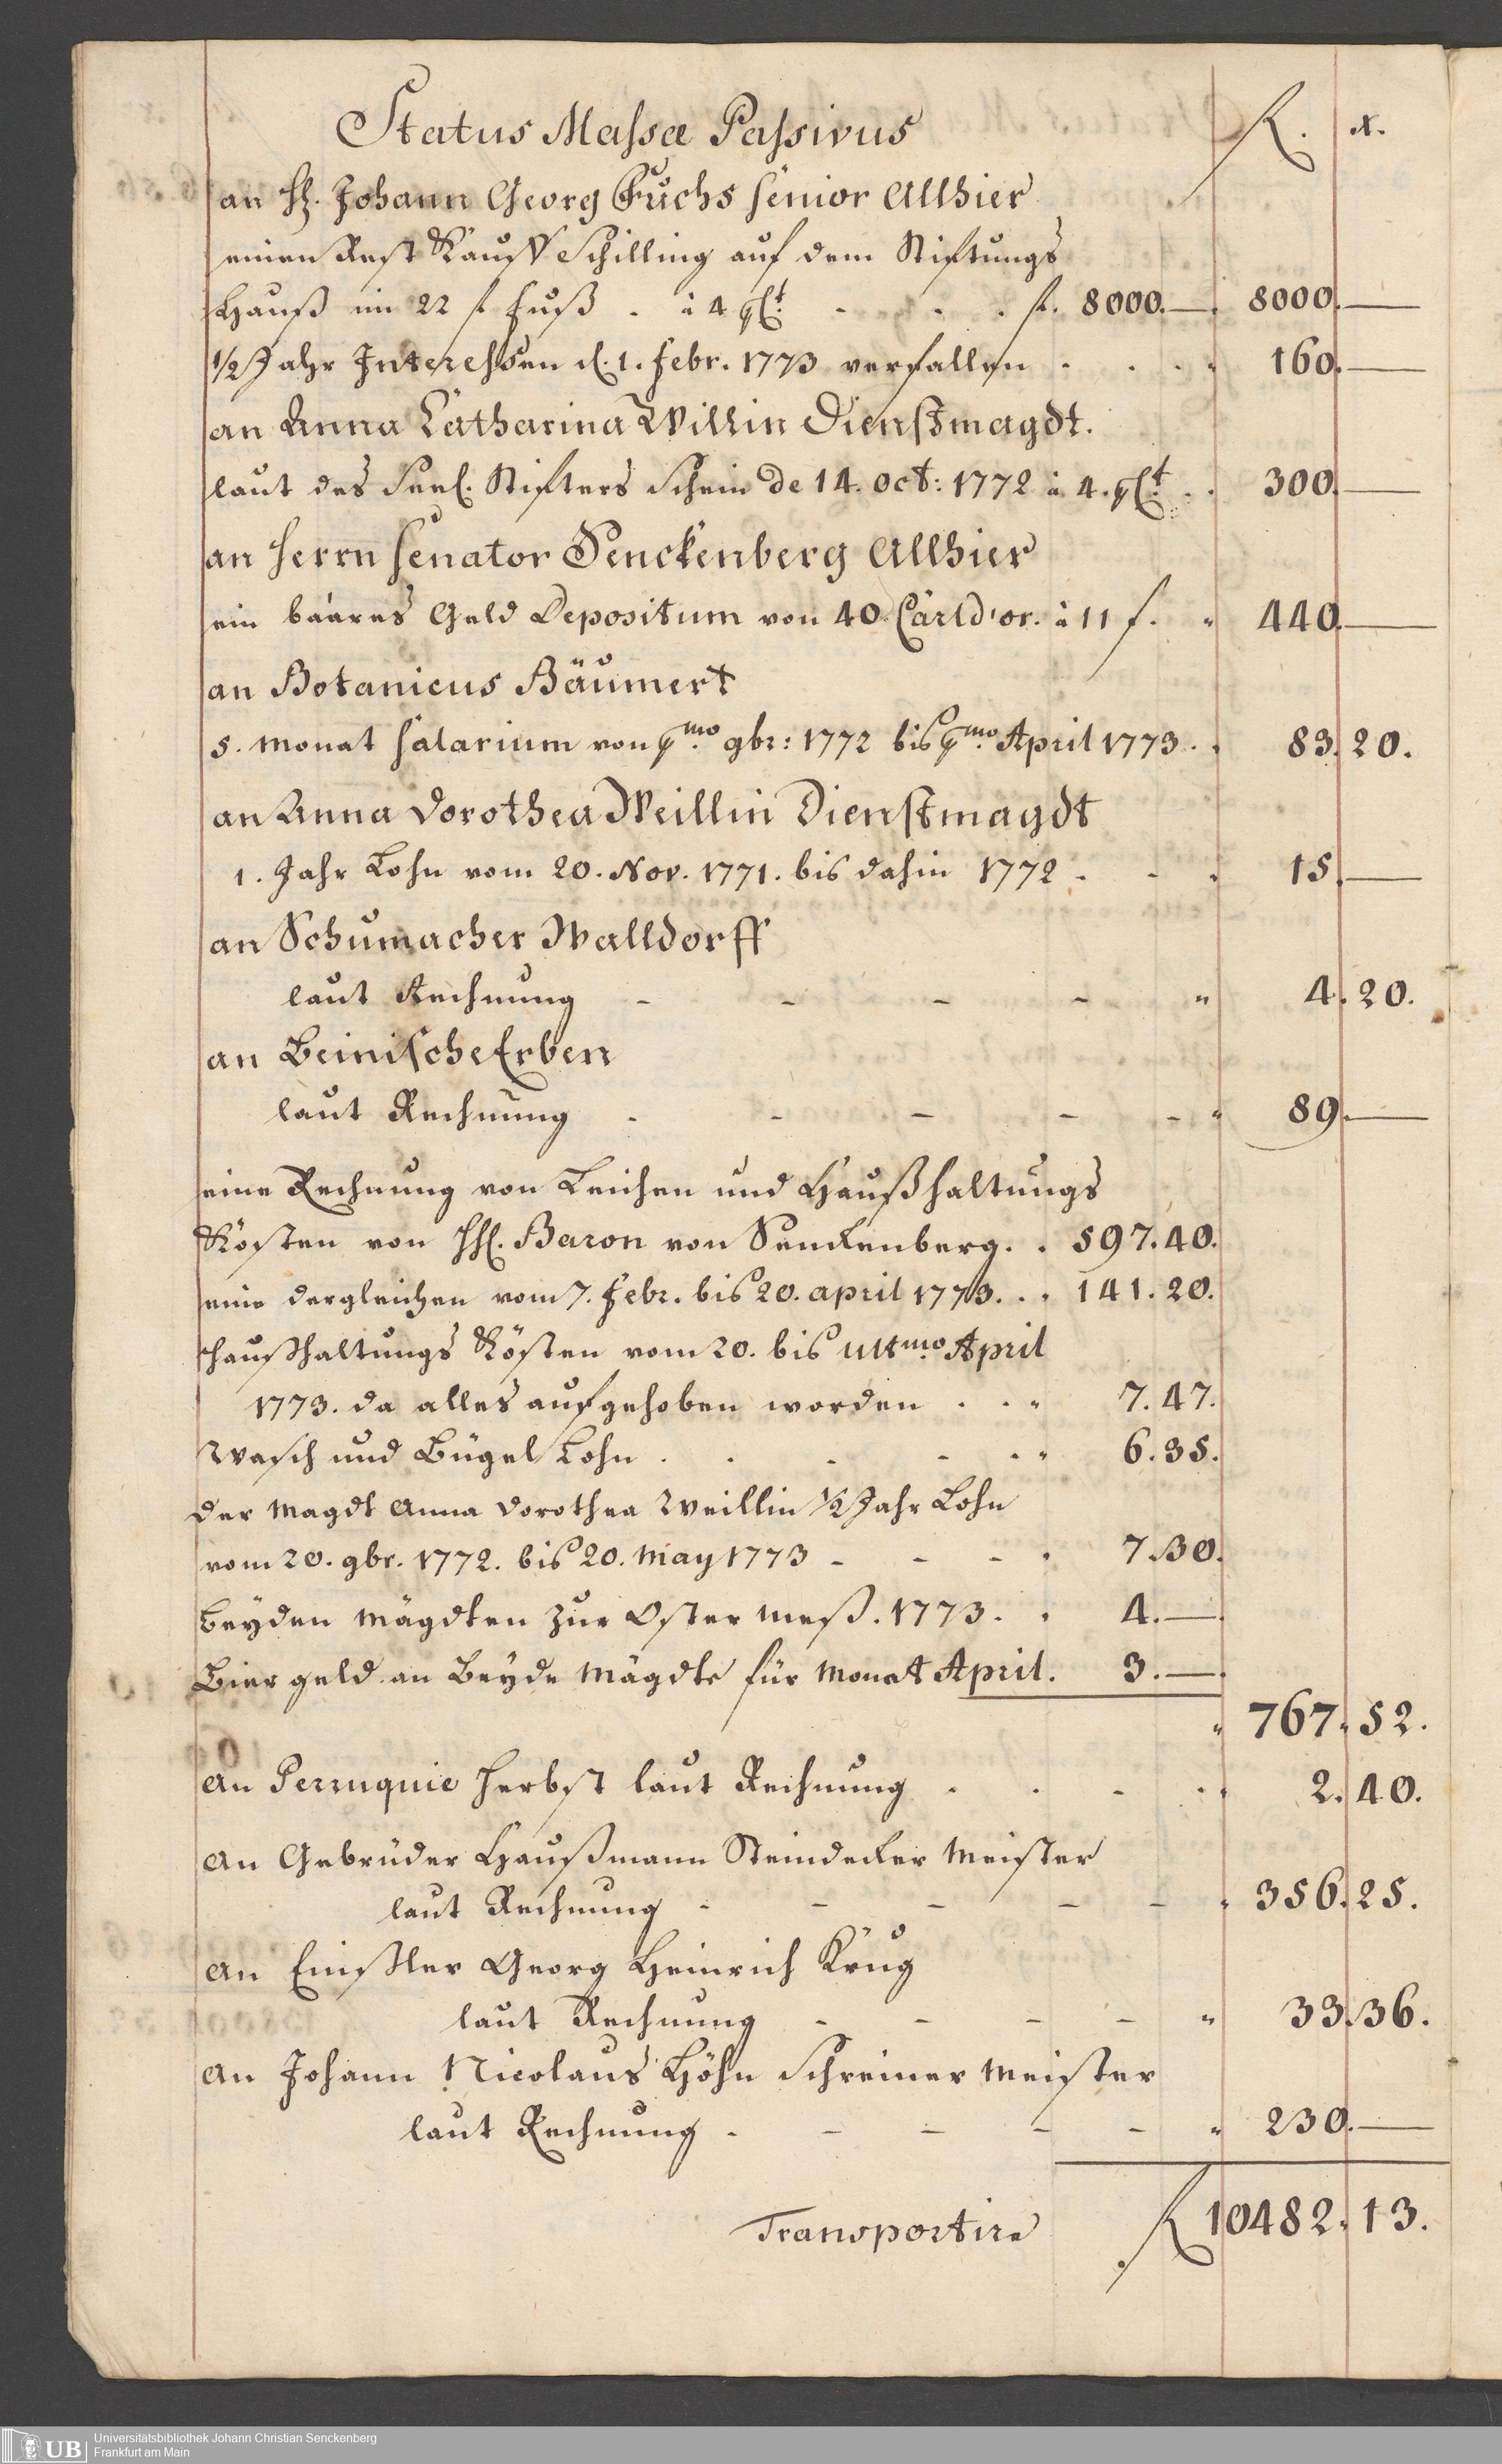 Status Massæ Passivus
fl. x.
an H. Johann Georg Fuchs senior Allhier
einen Rest Kauff Schilling auf dem Stiftungs
Hauß im 22 fl. fuß . à 4 pCt. - . . . fl. 8000.— 8000.—
1/2 Jahr Interessen d. 1. Febr. 1773 verfallen . . . . 160.—
an Anna Catharina Willin Dienstmagdt.
laut des Seel. Stifters Schein de 14. Oct: 1772 à 4. pCt. . . 300.—
an Herrn Senator Senckenberg Allhier
ein baares Geld Depositum von 40. Carld'or. à 11 f. " 440.—
an Botanicus Bäumert
5. Monat Salarium von pmo. 9br: 1772 bis pmo. April 1773 . . 83. 20.
an Anna Dorothea Weillin Dienstmagdt
1. Jahr Lohn vom 20. Nov. 1771. bis dahin 1772 . - . 15.—
an Schumacher Walldorff
laut Rechnung - - - - " 4. 20.
an Beinische Erben
laut Rechnung . - - - - " 89.—
eine Rechnung von Leichen und Haußhaltungs
Kösten von HH. Baron von Senckenberg. . 597. 40.
eine dergleichen vom 7. Febr. bis 20. april 1773. . . 141. 20.
Haußhaltungs Kösten vom 20. bis ultmo. April
1773. da alles aufgehoben worden . . " 7. 47.
Wasch und Bügel Lohn . . - - . " 6. 35.
der Magdt Anna Dorothea Weillin 1/2 Jahr Lohn
vom 20. 9br. 1772. bis 20. May 1773 - - - . 7. 30.
Beyden Mägdten zur Oster Meß. 1773. . 4.—
Bier geld an Beyde Mägdte für Monat April. 3.—
" 767. 52.
An Perruquie Herbst laut Rechnung . . - . . 2. 40.
An Gebrüder Haußmann Steindecker Meister
laut Rechnung - - - - - " 356. 25.
An Georg Heinrich Krug
laut Rechnung - - - - " 33. 36.
An Johann Nicolaus Höhn Schreiner Meister
laut Rechnung - - - - - " 230.—
Transportire fl. 10482. 13.
UB
Universitätsbibliothek Johann Christian Senckenberg
Frankfurt am Main